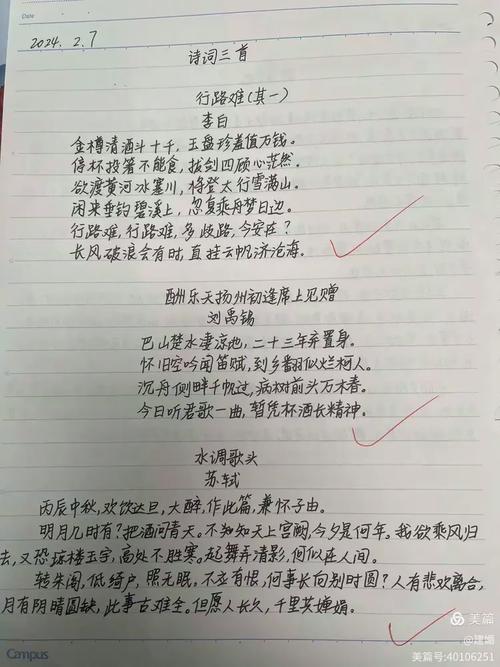 2024. 2.7
诗词三首
行路难(其一)
李白
金樽清酒斗十千,玉盘珍羞值万钱。
停杯投箸不能食,拔剑四顾心茫然。
欲渡黄河冰塞川,将登太行雪满山。
闲来垂钓碧溪上,忽复乘舟梦日边。
行路难,行路难,多歧路,今安在?
长风破浪会有时,直挂云帆济沧海。
酬乐天扬州初逢席上见赠
刘禹锡
巴山楚水凄凉地,二十三年弃置身。
怀旧空吟闻笛赋,到乡翻似烂柯人。
沉舟侧畔千帆过,病树前头万木春。
今日听君歌一曲,暂凭杯酒长精神。
水调歌头
苏轼
丙辰中秋,欢饮达旦,大醉,作此篇,兼怀子由。
明月几时有?把酒问青天。不知知天上宫阙,今夕是何年。我欲乘风归
去,又恐琼楼玉宇,高处不胜寒。起舞弄清影,何似在人间。
转朱阁,低绮户,照无眠。不应有恨,何事长向别时圆?人有悲欢离合,
月有阴晴圆缺,此事古难全。但愿人长久,千里共婵娟。
美篇
@建婻
Campus
美篇号:40106251